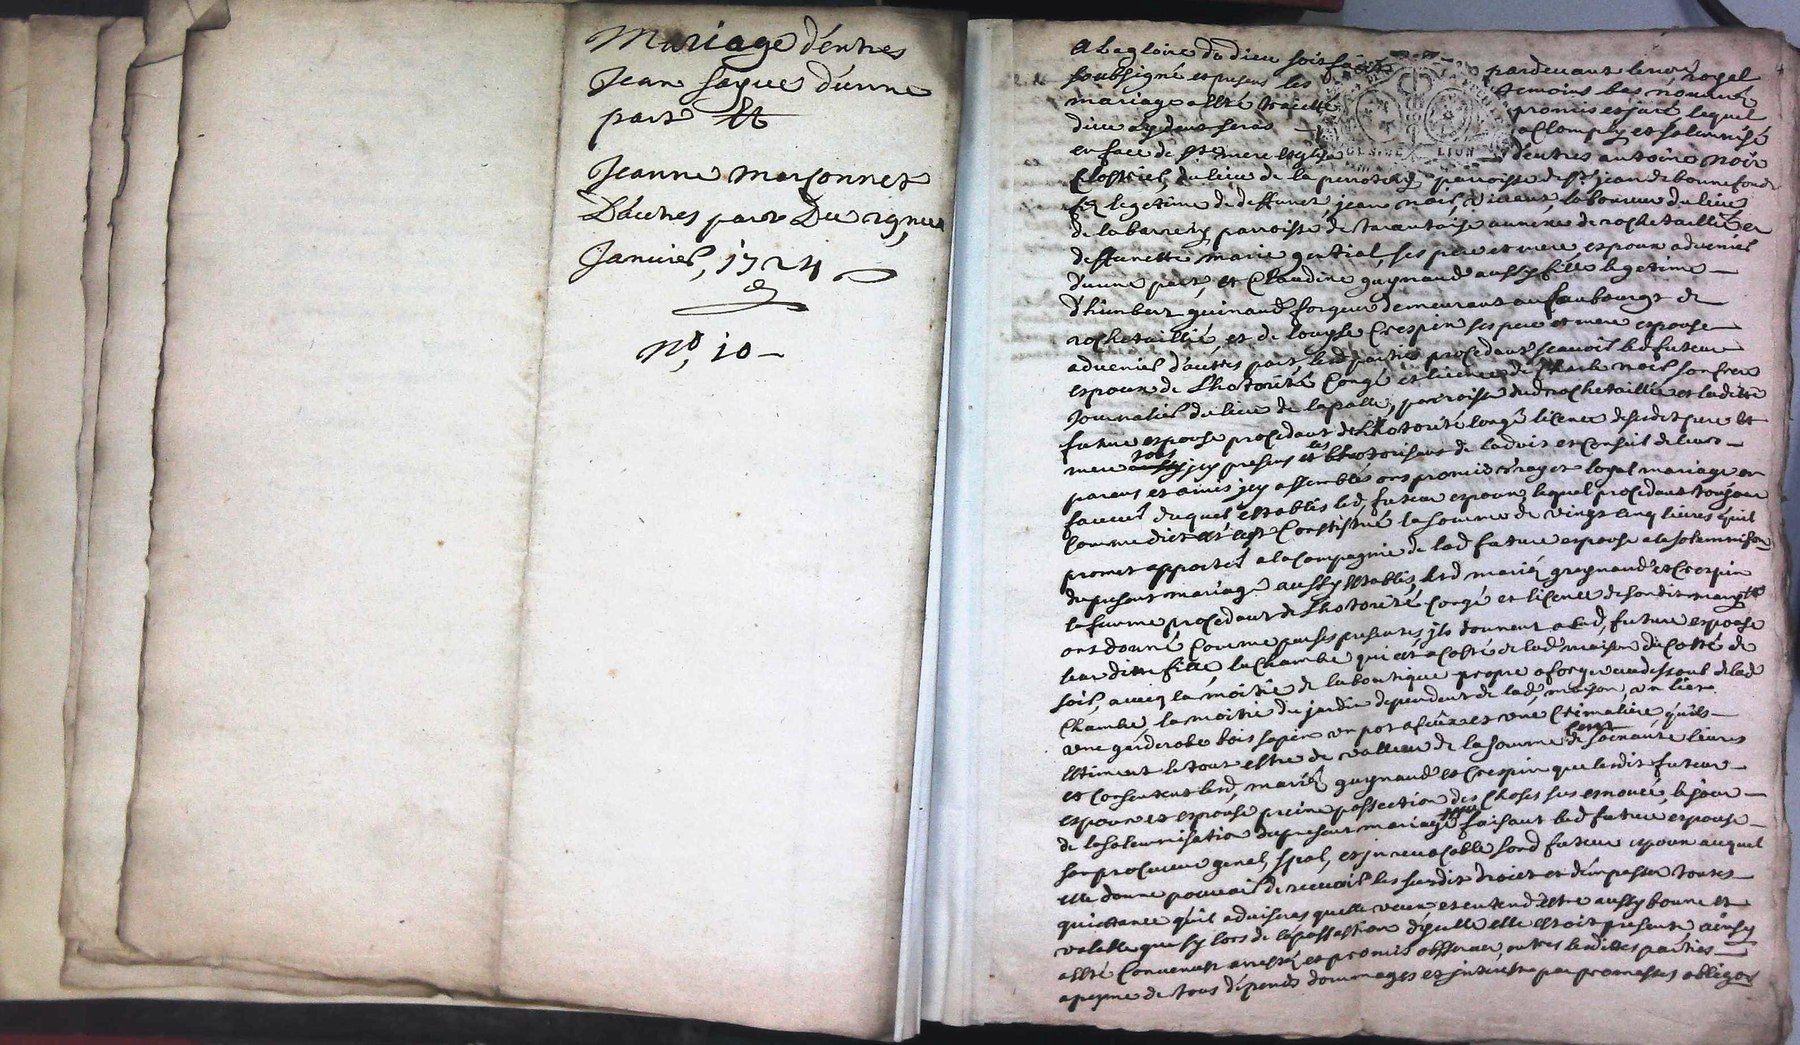 Mariage d'entres
Jean saque d'unne
part Et
Jeanne marsonnet
D'autres part Du
Janvier, 1724
No, 10
A la gloire de dieu soit fait pardevant le no.re royal
soubsigné et presens les temoins bas nommés
mariage a esté traicté promis et juré lequel
dieu aydant seras acComply et solannisé
en face de s.te mere esglise d'entres antoine noir
Clostrier, du lieu de la parroisse de s.t jean de bonnefonds
filz legetime de deffunct, jean noir, vivant, laboureur du lieu
de la barrery parroisse de tarantaise annexe de rochetaillié et
deffunette marie gential, ses pere et mere, espoux advenir
d'unne part, et Claudine guynaud aussy fille legetime
d'himbert guinaud forgeur demeurant au faubourgt de
rochetaillié, et de louyse Crespin ses pere et mere espouse
advenir d'autres part, lesd parties procedant sçavoir led futeur
espoux de L'hotorité Congé et licence de noir son frere
Journalier du lieu de lapalle, parroisse dud rochetaillié et laditte
future espouse procedant de L'hotorité Congé licence desesdit pere et
mere tous jcy presens et les L'hotorisant de ladvis et Conseil de leurs
parens et amis jcy assemblés ont promis vray et loyal mariage en
faveur duquel establis led, futeur espoux, lequel procedant toujour
Comme dict est s'est Constitué la somme de vingt cinq livres qu'il
promet apporter a la Compagnie de lad future espouse a la solemnison
du present mariage aussy establis, lesd mariés guynaud et Crespin
la femme procedant de L'hotorité Congé et licence de son dit mary
ont donné Comme par ses presentes, jls donnent a lad, future espouse
leur ditte fille, la Chambre qui est a Costé de lad maison du Costé de
soir, avecq la moitié de la boutique propre a forger au dessoub de lad
Chambre, la moitié du jardin dependent de lad, maison, un lier
une garderobe bois sapin un pot a feux et une Crimaliere qu'ils
Estiment le tout estre de valleur de la somme de Cent soixante livres
et Consentent lesd, mariés guynaud et Crespin que lesdit futeur
espoux et espouse preine possection des Choses sus enoncé, le jour
de la solemnisation du present mariage faisant lad future espouse
son procureur genel, spial, et jrrevocable sond futeur espoux auquel
elle donne pouvoir de recevoir les susdit droict et d'en passer toutes
quictance qu'il adviseras quelle veux et entend estre aussy bonne et
valable que sy lors de la passation d'yselle elle estoit presente ainsy
esté Convenut arresté et promis observer, entres lesdittes parties
a peyne de tous dépends dommages et jnterestz par promesses obligõn